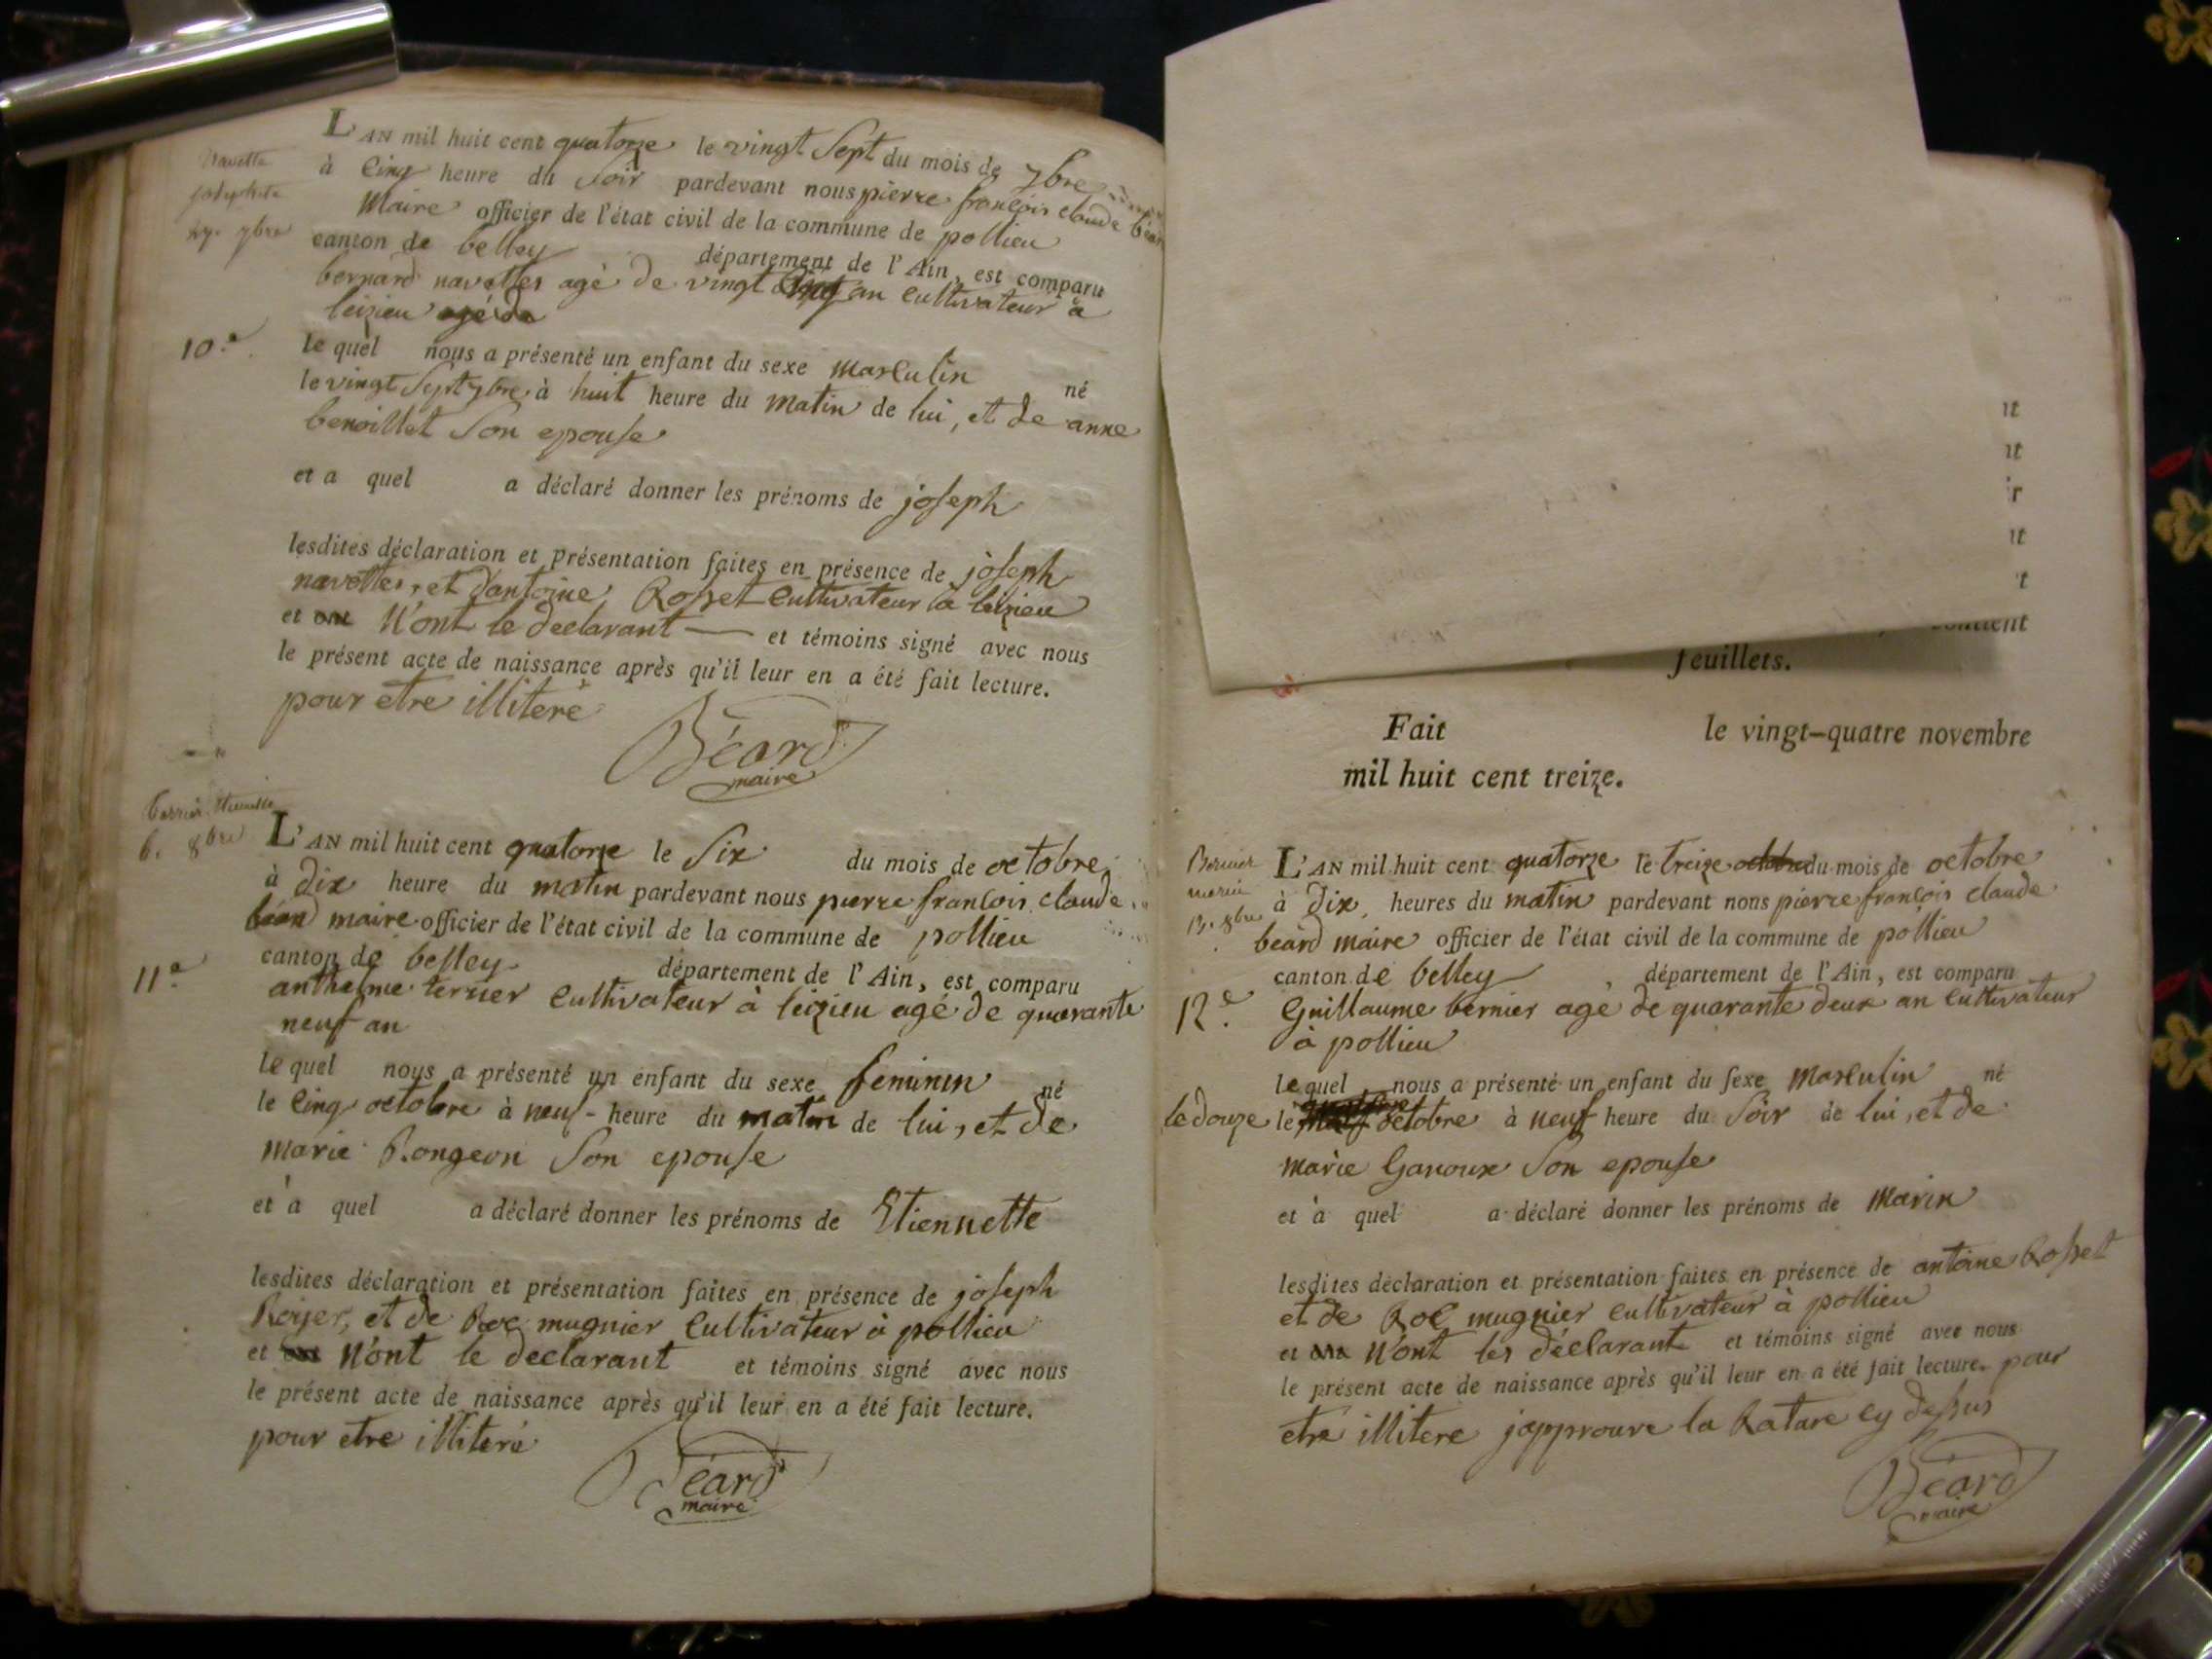 L'AN mil huit cent quatorze le vingt Sept du mois de 7bre
à Cinq heure du Soir pardevant nous pierre françois claude
Maire officier de l'état civil de la commune de pollieu
canton de belley département de l'Ain, est comparu
bernard navettes agé de vingt an Cultivateur à
leizieu
10.e
le quel nous a présenté un enfant du sexe masculin né
le vingt Sept 7bre à huit heure du matin de lui, et de anne
benoillet Son epouse
et a quel a déclaré donner les prénoms de joseph
lesdites déclaration et présentation faites en présence de joseph
navettes, et d'antoine Rosset Cultivateur à leizieu
et N'ont le declarant et témoins signé avec nous
le présent acte de naissance après qu'il leur en a été fait lecture.
pour etre illiteré
Béard
maire
6. 8bre
L'AN mil huit cent quatorze le Six du mois de octobre
à Dix heure du matin pardevant nous pierre francois claude
béard maire officier de l'état civil de la commune de pollieu
canton de belley département de l'Ain, est comparu
11.e
anthelme terrier Cultivateur à leizieu agé de quarante
neuf an
le quel nous a présenté un enfant du sexe feminin né
le Cinq octobre à neuf heure du matin de lui, et de
marie Rongeon Son epouse
et à quel a déclaré donner les prénoms de Etiennette
lesdites déclaration et présentation faites en présence de joseph
Roijer, et de Roc mugnier Cultivateur à pollieu
et N'ont le declarant et témoins signé avec nous
le présent acte de naissance après qu'il leur en a été fait lecture.
pour etre illiteré
Béard
maire
feuillets.
Fait le vingt-quatre novembre
mil huit cent treize.
Bernier
marin
13. 8bre
L'AN mil huit cent quatorze le treize octobre du mois de octobre
à Dix heures du matin pardevant nous pierre françois claude
beard maire officier de l'état civil de la commune de pollieu
canton de belley département de l'Ain, est comparu
12.e
Guillaume bernier agé de quarante deux an Cultivateur
à pollieu
le quel nous a présenté un enfant du sexe Masculin né
le douze le octobre à neuf heure du Soir de lui, et de
marie Ganoux Son epouse
et à quel a déclaré donner les prénoms de Marin
lesdites déclaration et présentation faites en présence de antoine Rosset
et de Roc mugnier cultivateur à pollieu
et N'ont les déclarant et témoins signé avec nous
le présent acte de naissance après qu'il leur en a été fait lecture. pour
etre illitere japprouve la Rature cy dessus
Béard
maire